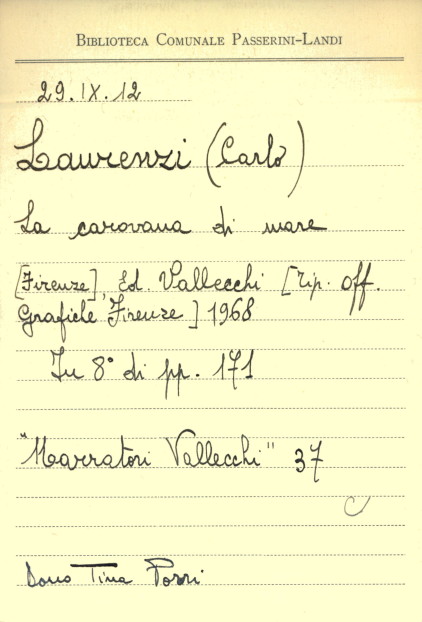 BIBLIOTECA COMUNALE PASSERINI-LANDI
29.IX.12
Laurenzi (Carlo)
La carovana di mare
[Firenze], Ed. Vallecchi [Tip. Off.
Grafiche Firenze] 1968
In 8° di pp. 171
"Narratori Vallecchi" 37
C
Dono Tina